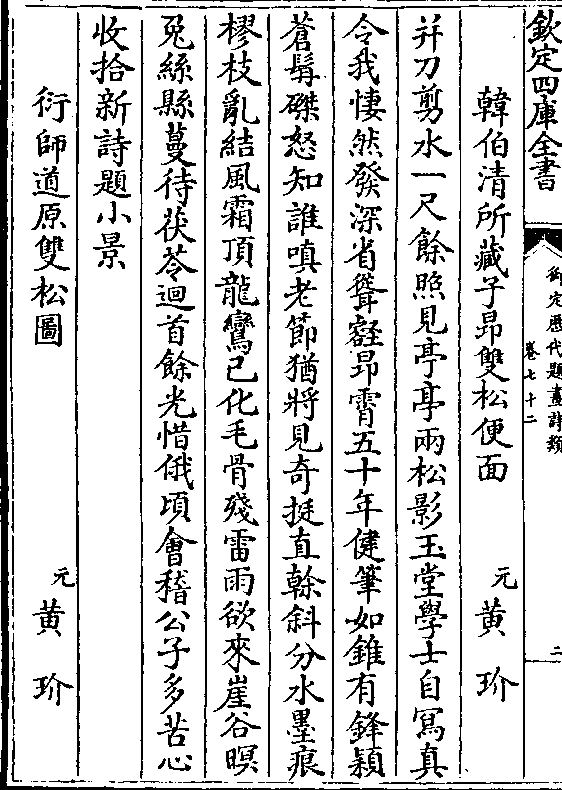 欽定四庫全書
御定歷代題畫詩類
卷七十二
二
韓伯清所藏子昂雙松便面
元
黄玠
并刀剪水一尺餘照見亭亭兩松影玉堂學士自寫真
令我悽然發深省聳壑昂霄五十年健筆如錐有鋒穎
蒼髯磔怒知誰嗔老節猶將見奇挺直榦斜分水墨痕
樛枝亂結風霜頂龍鸞已化毛骨殘雷雨欲來崖谷暝
兔絲縣蔓待茯苓迴首餘光惜俄頃會稽公子多苦心
收拾新詩題小景
衍師道原雙松圖
元
黄玠